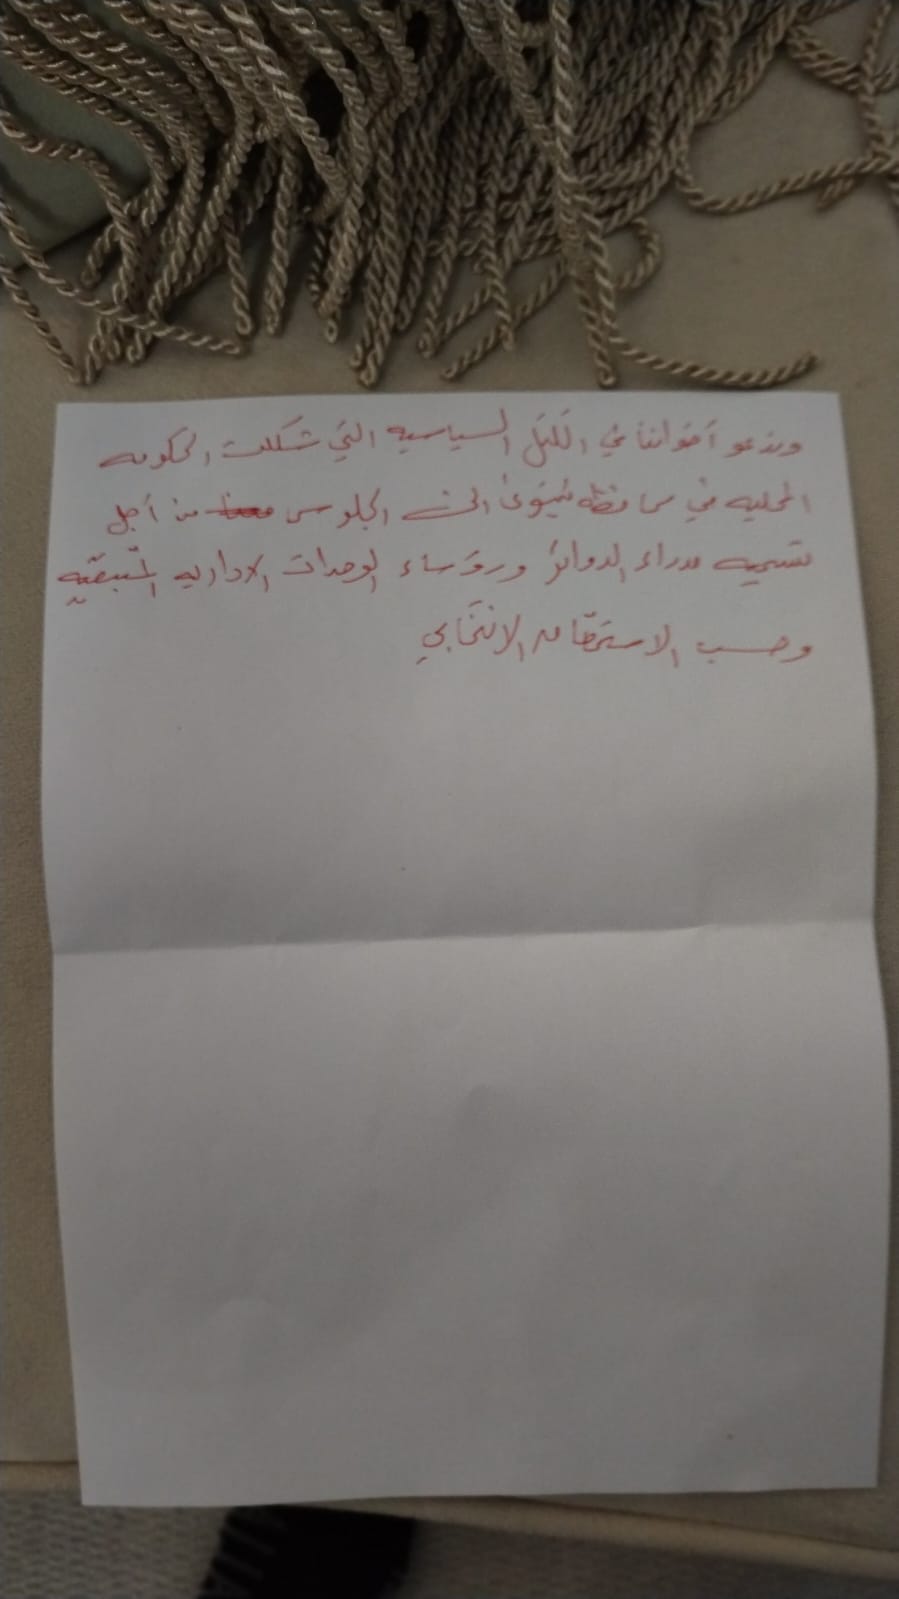 وندعو أخواننا في الكتل السياسيه التي شكلت الحكومه
المحليه في محافظة نينوى الى الجلوس من أجل
تسميه مدراء الدوائر ورؤساء الوحدات الاداريه المتبقيه
وحسب الاستحقاق الانتخابي